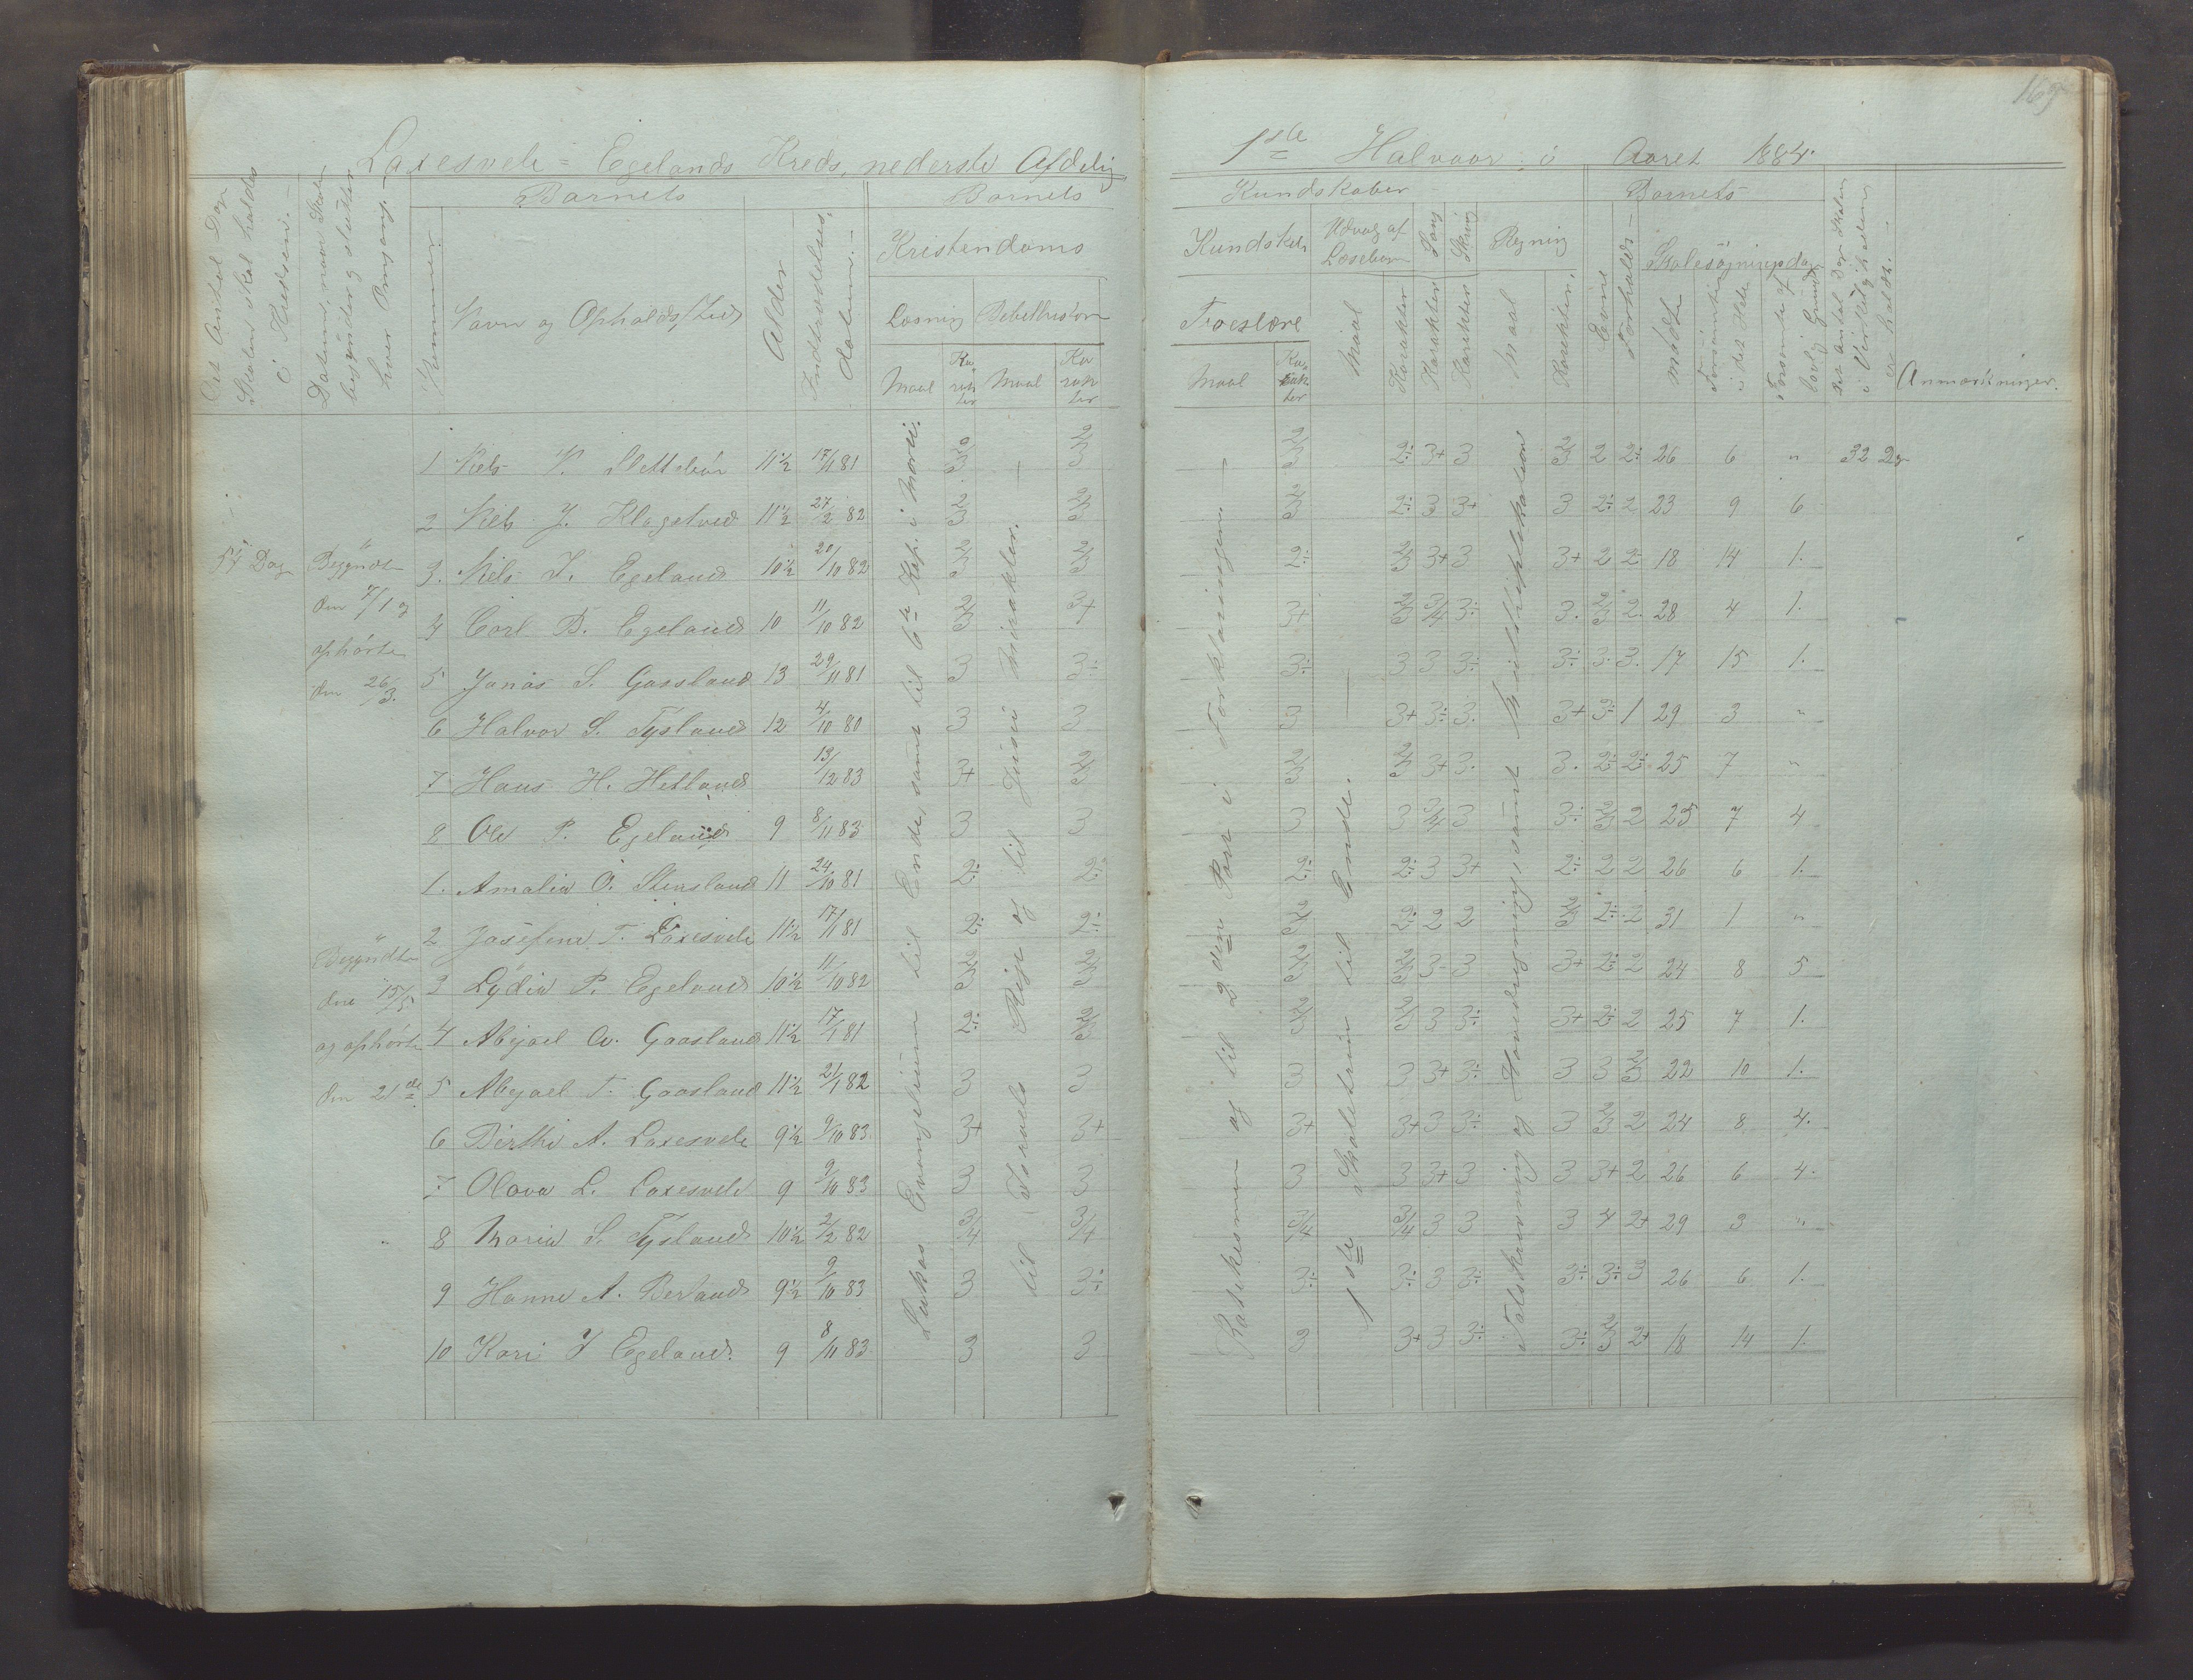 169
Laxesvele = Egelands Kreds, nederste Afdeling
1ste Halvaar i Aaret 1884.
Det Antal Dage Skolen skal holdes i Kredsen. –
Datum, naar Skolen begynder og slutter hver Omgang. –
Barnets
Nummer.
Navn og Opholdssted
Alder
Indtrædelses Datum. –
Barnets
Kristendoms
Læsning
Bibelhistorie
Maal
Karakter
Maal
Karakter
Kundskaber
Kundskab
Troeslære
Maal
Karakter
Udvalg af Læsebogen
Maal
Karakter
Sang
Karakter
Skrivning
Karakter
Regning
Maal
Karakter.
Barnets
Evne
Forholds –
Skolesøgningsdage
mødte
Forsømte i det Hele
Forsømte af lovlig Grund
Det Antal Dage Skolen i Virkelighedeu er holdt. –
Anmærkninger.
54 Dag
Begyndte den 7/1 og ophørte den 26/3.
Begyndte den 15/5 og ophørte den 21de
Lukas Evangelium til Ende, samt til 6te Kap. i Marci.
til Israels Rige og til Jesu Mirakler. –
Katekismen og til 2den Part i Forklaringen –
1ste Skoletrin til Ende. –
Talskrivning og Hovedregning, samt Multiplikation
1 Nels P. Slettebø 11½ 17/1 81 2/3 2/3 2/3 2÷ 3+ 3 2/3 2 2÷ 26 6 " 32 Dg
2 Nels J. Klogetved 11½ 27/2 82 2/3 2/3 2/3 2÷ 3 3+ 3 2÷ 2 23 9 6
3. Nels J. Egeland 10½ 20/10 82 2/3 2/3 2÷ 2/3 3+ 3 3+ 2 2 18 14 1.
4 Carl B. Egeland 10 11/10 82 2/3 3+ 3+ 2/3 3/4 3÷ 3. 2/3 2. 28 4 1.
5 Jonas S. Gaasland 13 29/11 81 3 3÷ 3÷ 3 3 3÷ 3÷ 3. 3. 17 15 1.
6 Halvor S. Tysland 12 4/10 80 3 3 3 3+ 3÷ 3. 3+ 3÷ 1 29 3 "
7 Hans H. Hetland 13/12 83 3+ 2/3 2/3 2/3 3+ 3. 3. 2÷ 2÷ 25 7 "
8 Ole P. Egeland 9 8/11 83 3 3 3 3 3/4 3 3÷ 2/3 2 25 7 4
1. Amalia O. Stensland 11 24/10 81 2÷ 2÷ 2÷ 2÷ 3 3+ 2÷ 2 2 26 6 1.
2 Josefine T. Laxesvele 11½ 17/1 81 2÷ 2÷ 2/3 2÷ 2 2 2/3 2÷ 2 31 1 "
3 Lydia P. Egeland 10½ 11/10 82 2/3 2/3 2/3 2/3 3- 3 3+ 2÷ 2 24 8 5
4 Abigael A. Gaasland 11½ 17/1 81 2÷ 2/3 2/3 2/3 3 3÷ 3+ 2÷ 2 25 7 1.
5 Abigael T. Gaasland 11½ 21/1 82 3 3 3 3 3+ 3÷ 3 3 2/3 22 10 1.
6 Birthe A. Laxesvele 9½ 9/10 83 3+ 3+ 3+ 3+ 3 3÷ 3 2/3 2 24 8 4.
7 Olava L. Laxesvele 9 9/10 83 3 3 3 3 3+ 3 3 3+ 2 26 6 4.
8 Maria S. Tysland 10½ 2/2 82 3/4 3/4 3/4 3/4 3 3 3 4 2+ 29 3 "
9 Hanne A. Birland 9½ 9/10 83 3 3÷ 3÷ 3÷ 3 3÷ 3÷ 3÷ 3 26 6 1.
10 Kari J Egeland. 9 8/11 83 3 3 3 3+ 3 3÷ 3÷ 2/3 2+ 18 14 1.